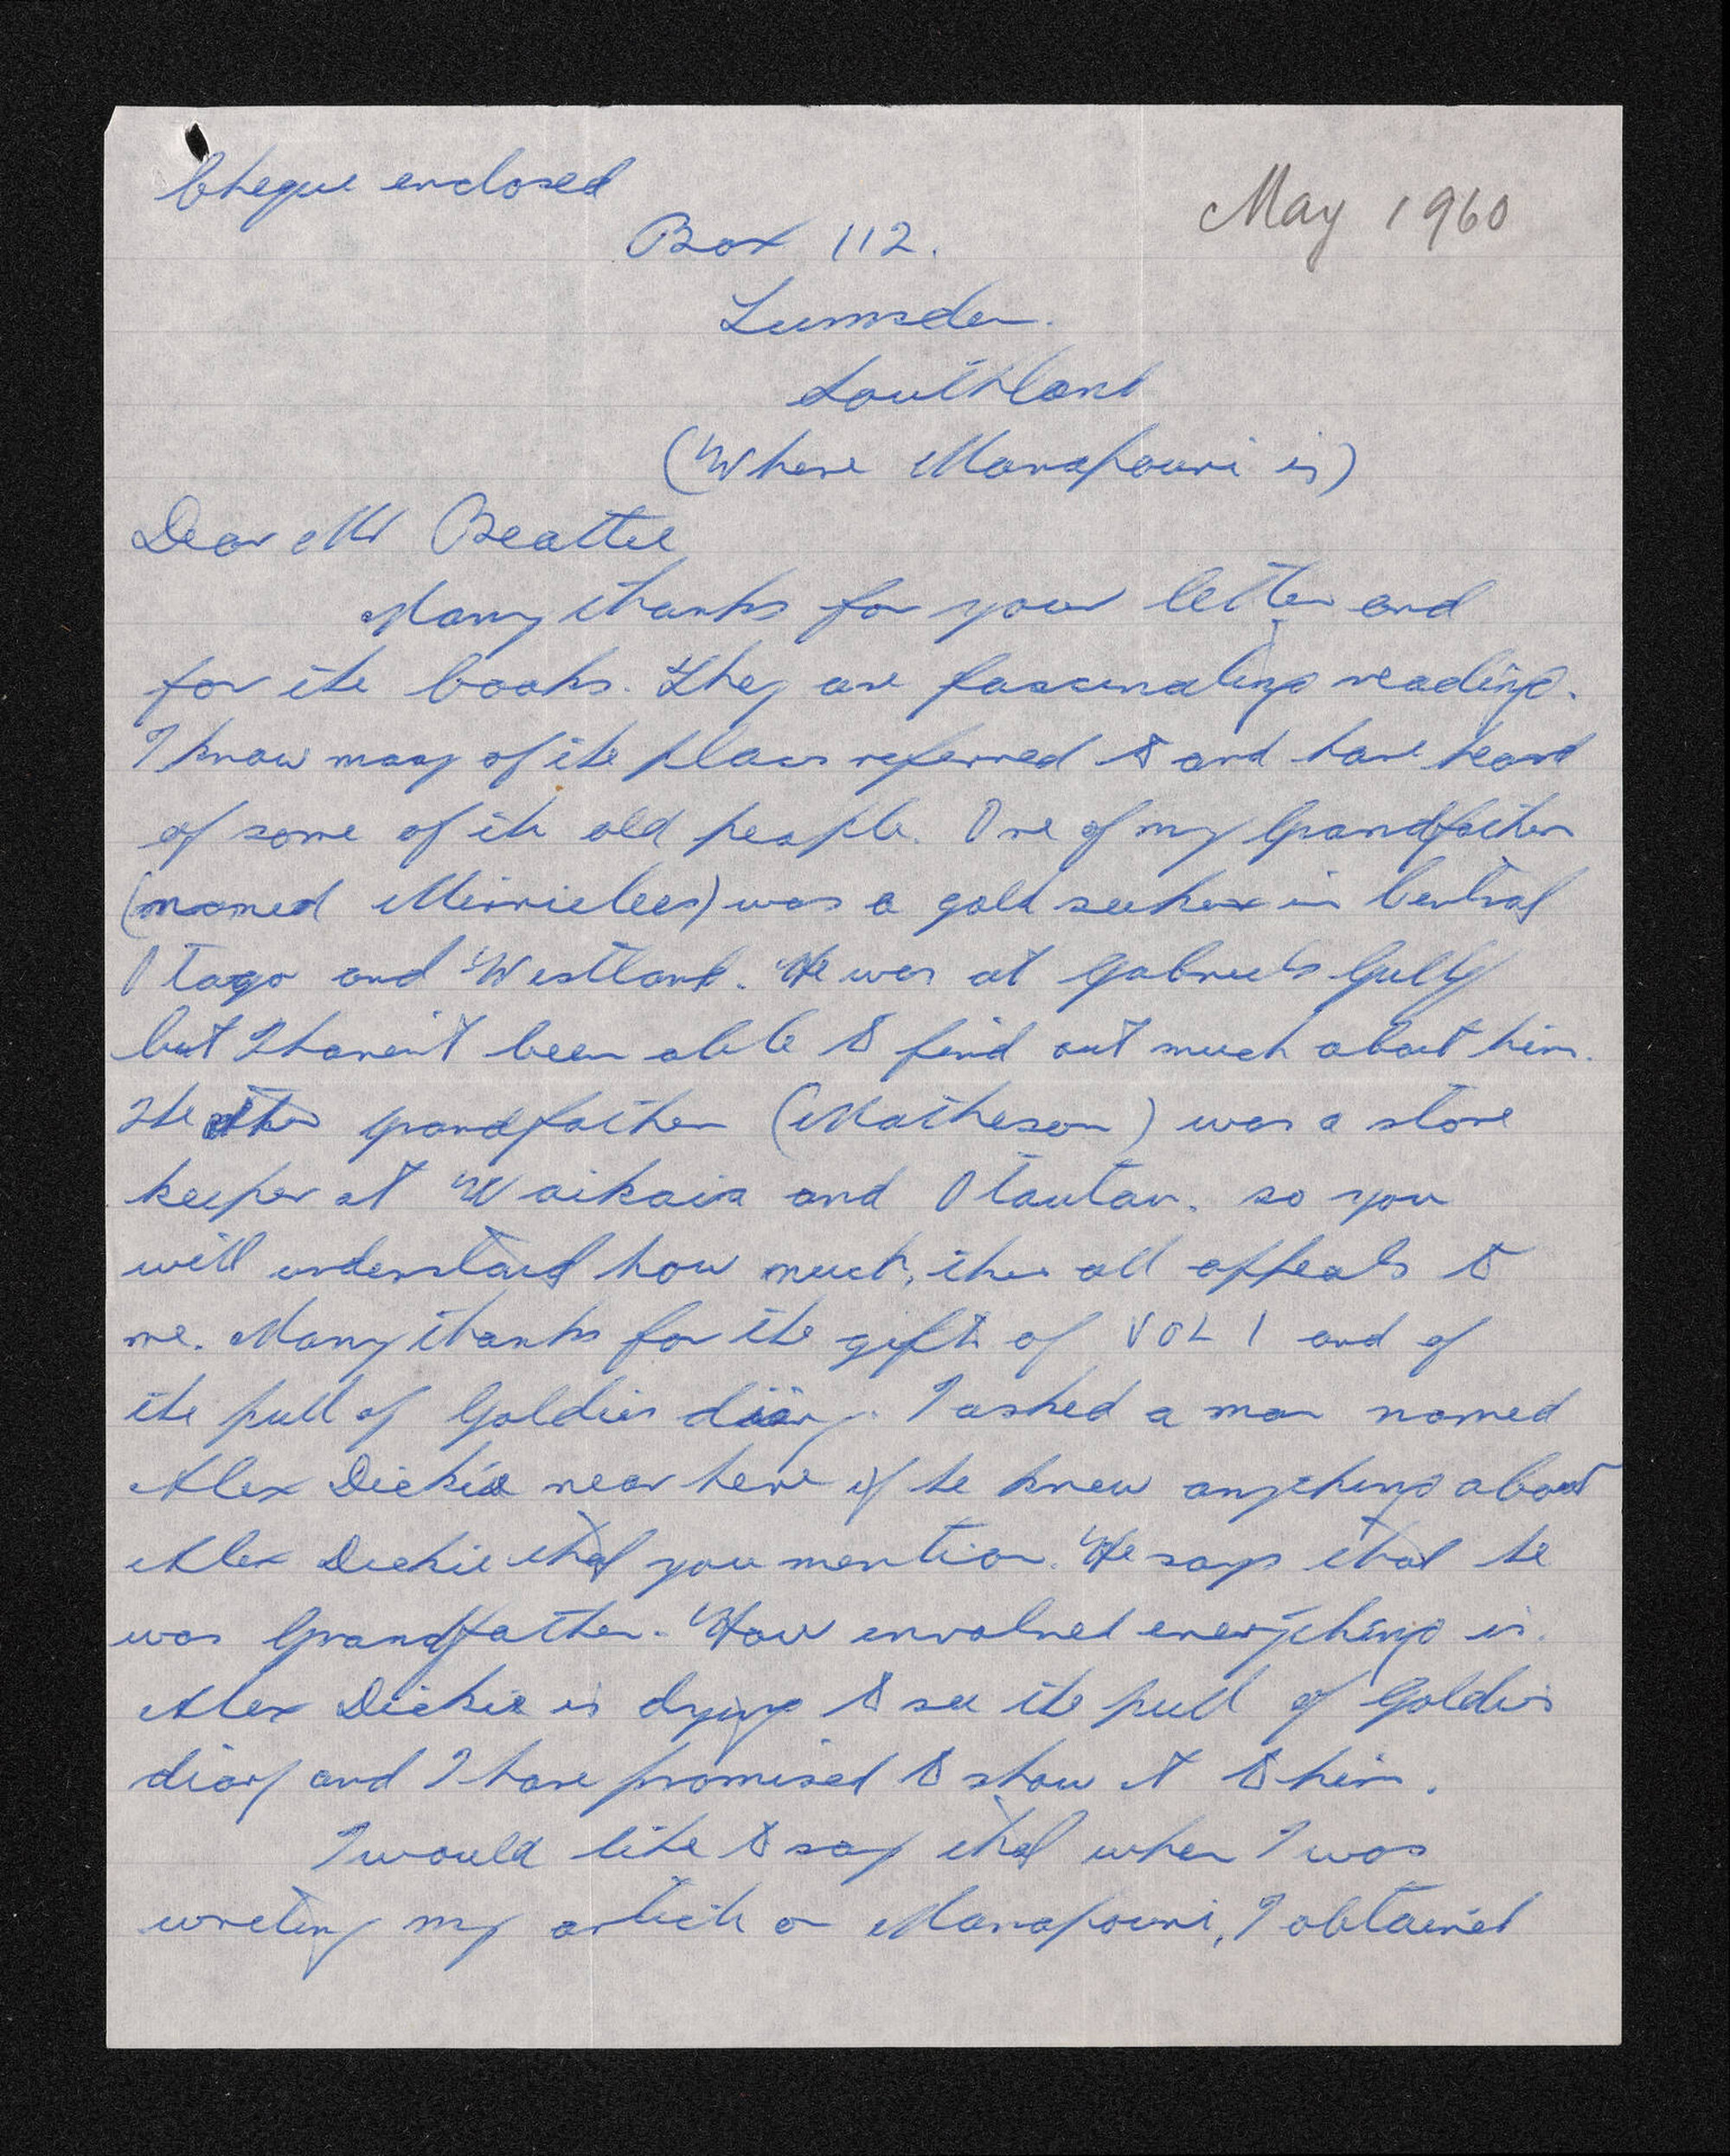 Cheque enclosed
May 1960
Box 112.
Lumsden.
Southland
(Where Manapouri is)
Dear Mr Beattie
Many thanks for your letter and
for the books. They are fascinating reading.
I know many of the places referred to and have heard
of some of the old people. One of my Grandfathers
(named Mirrielees) was a gold seeker in Central
Otago and Westland. He was at Gabriels Gully
but I haven't been able to find out much about him.
The other grandfather (Matheson) was a store
keeper at Waikaia and Otautau. so you
will understand how much, this all appeals to
me. Many thanks for the gift of VOL 1 and of
the pull of Goldies diary. I asked a man named
Alex Dickie near here if he knew anything about
Alex Dickie that you mention. He says that he
was Grandfather. How involved everything is.
Alex Dickie is dying to see the pull of Goldies
diary and I have promised to show it to him.
I would like to say that when I was
writing my article on Manapouri, I obtained